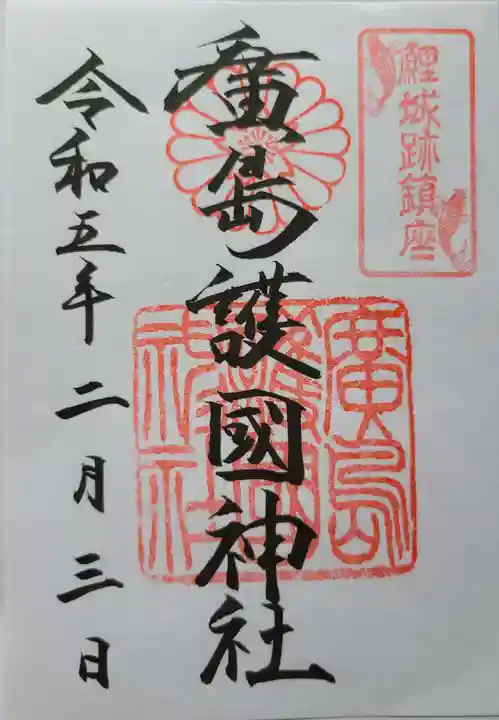 鯉城跡鎮座
廣島護國神社
廣島護國神社
令和五年二月三日